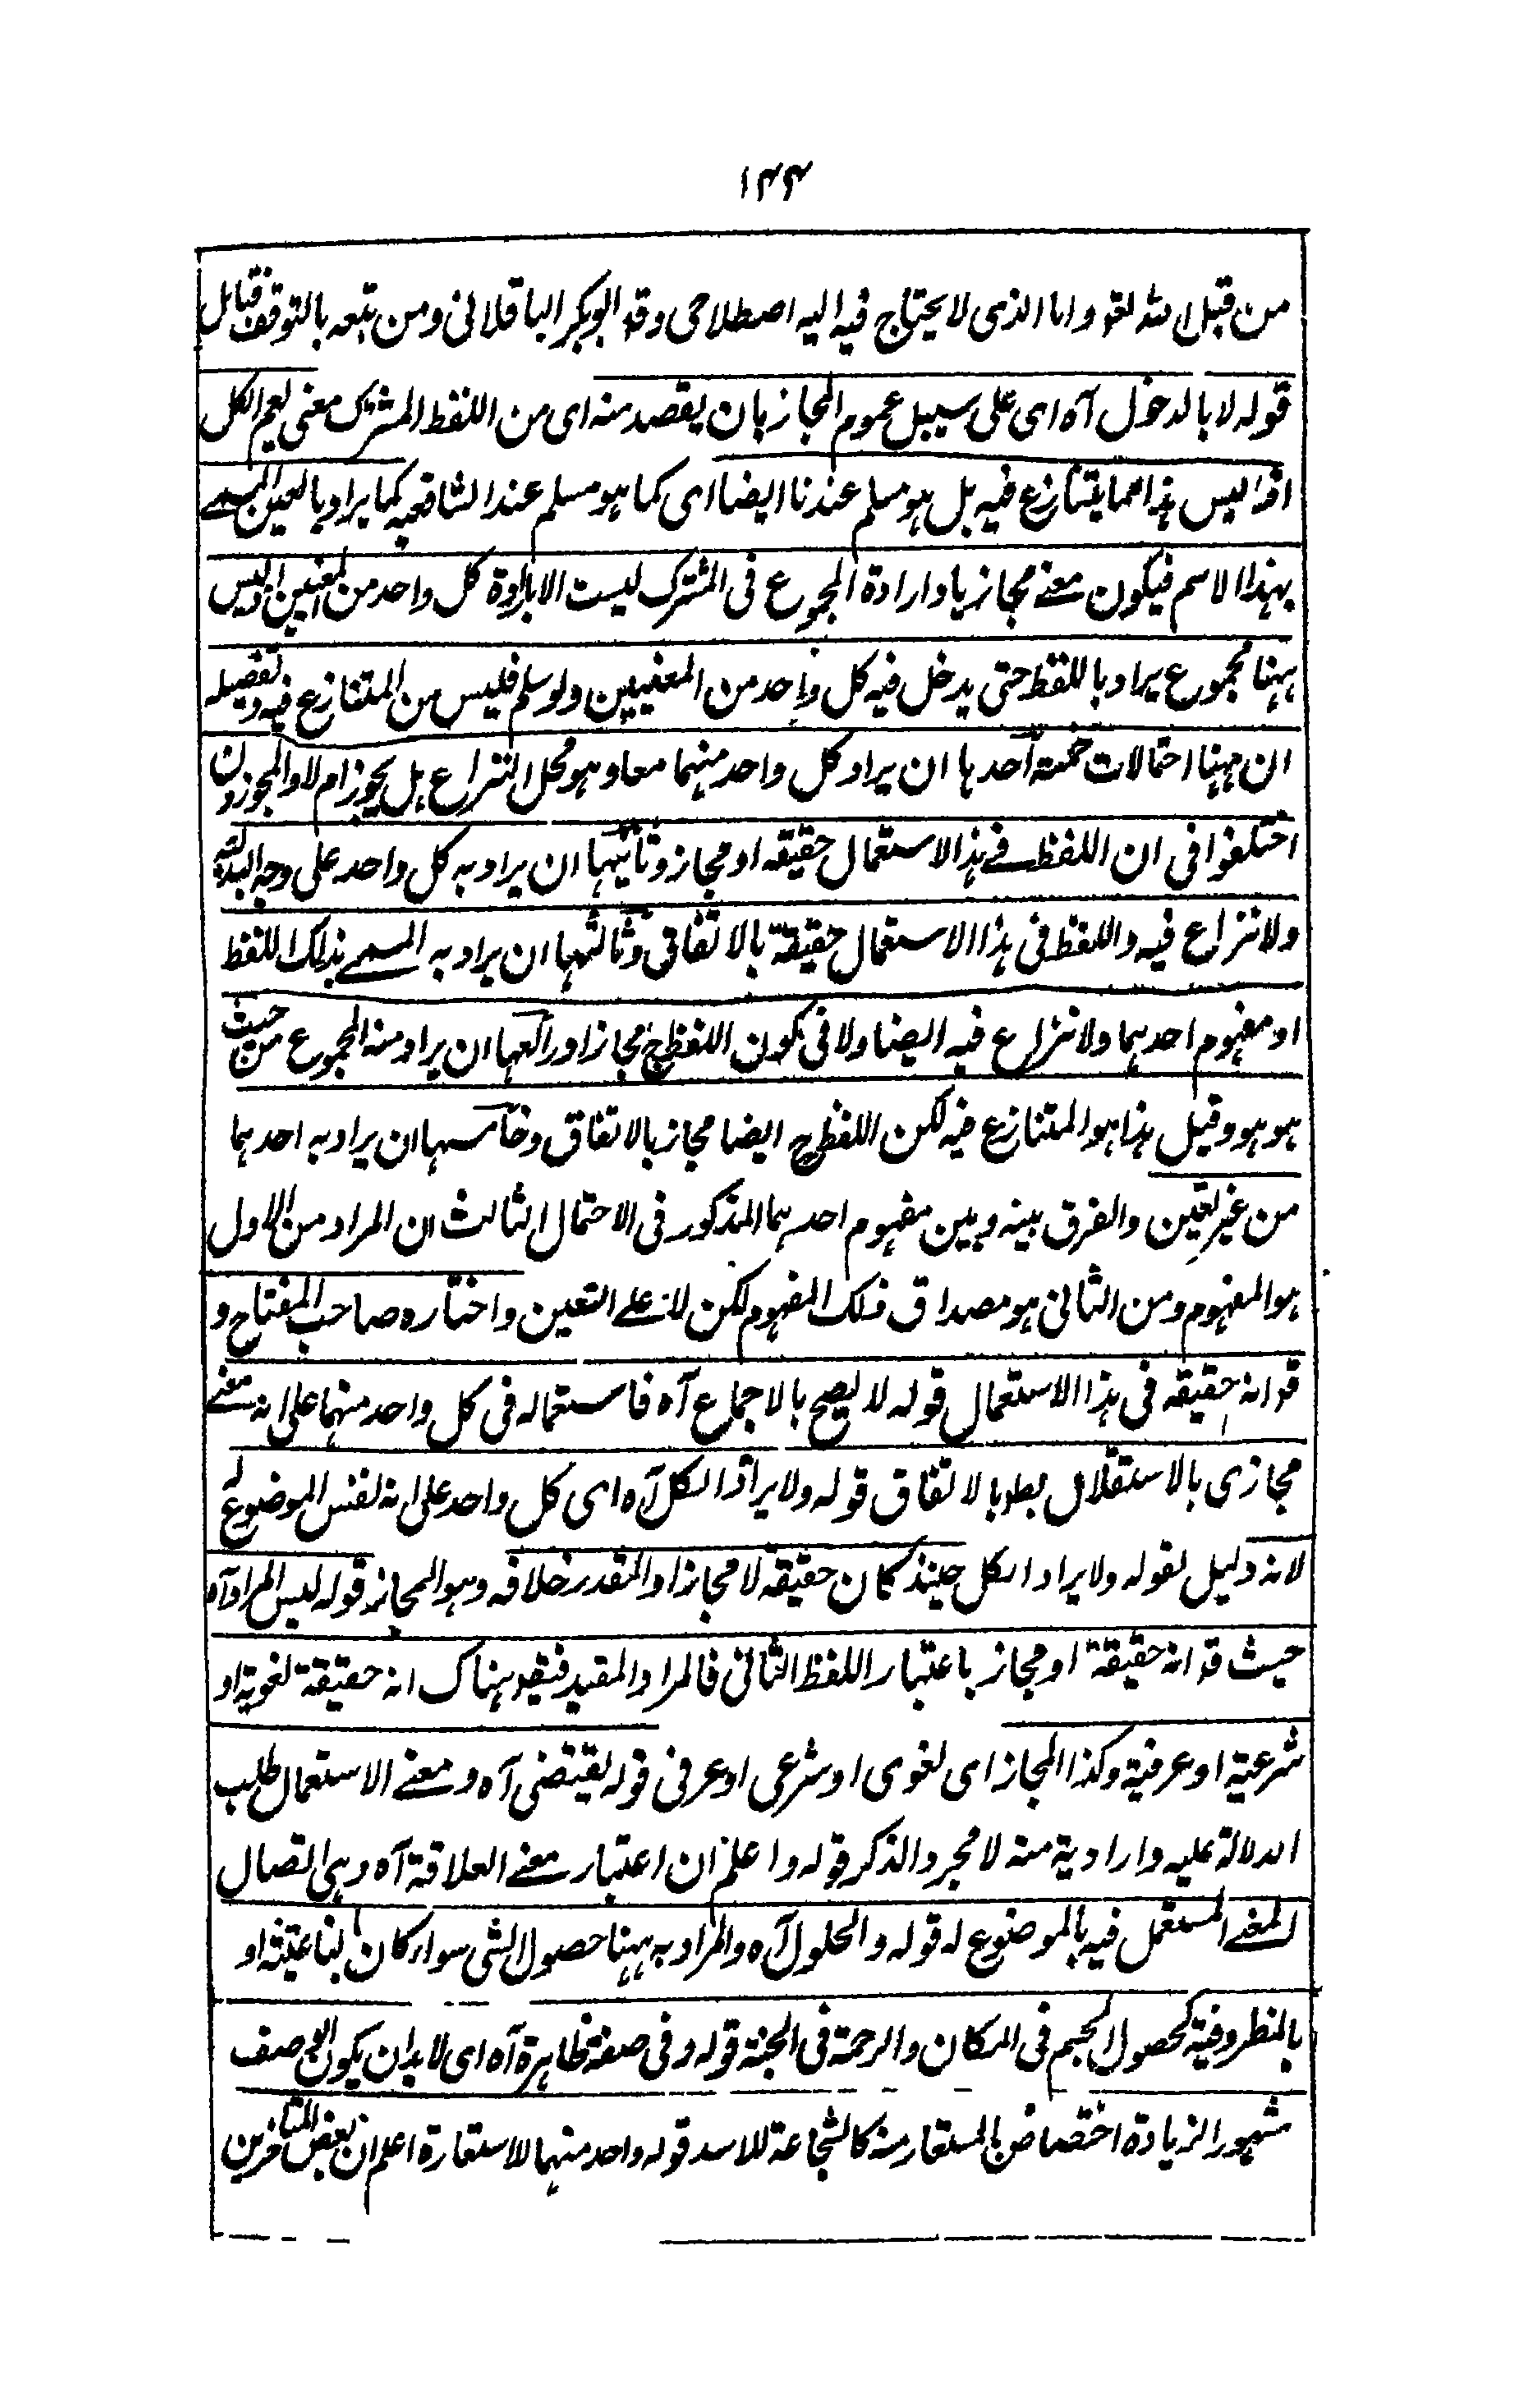 ١٣٤
من قبل الله لقو واما الذى لا يحتاج فيه اليه اصطلاحى وقو ابو بكر الباقلانى ومن تبعه بالتوقف قبائل
قوله لا بالدخول آه اى على سبيل عموم المجاز بان يقصد منه اى من اللفظ المشترك معنى يعم الكل
اقو ليس هذا مما يتنازع فيه بل هو مسلم عندنا ايضا اى كما هو مسلم عند الشافعيه كما يراد بالعين المسمے
بهذا الاسم فيكون معنے مجازيا وارادة المجموع فى المشترك ليست الا ارادة كل واحد من المعنيين اذ ليس
ههنا مجموع يراد باللفظ حتى يدخل فيه كل واحد من المعنيين ولو سلم فليس من المتنازع فيه وتفصيله
ان ههنا احتمالات خمسة احدها ان يراد كل واحد منهما معا وهو محل النزاع هل يجوز ام لا والمجوزون
اختلفوا فى ان اللفظ فے هذا الاستعمال حقيقه او مجاز وثانيها ان يراد به كل واحد على وجه البدلية
ولا نزاع فيه واللفظ فى هذا الاستعمال حقيقة بالاتفاق وثالثها ان يراد به المسمے بذلك اللفظ
او مفهوم احدهما ولا نزاع فيه ايضا ولا فى كون اللفظ ح مجازا ورابعها ان يراد منه المجموع من حيث
هو هو وقيل هذا هو المتنازع فيه لكن اللفظ ح ايضا مجاز بالاتفاق وخامسها ان يراد به احدهما
من غير تعين والفرق بينه وبين مفهوم احدهما المذكور فى الاحتمال الثالث ان المراد من الاول
هو المفهوم ومن الثانى هو مصداق ذلك المفهوم لكن لا علے التعين واختاره صاحب المفتاح و
قو انه حقيقه فى هذا الاستعمال قوله لا يصح بالاجماع آه فاستعماله فى كل واحد منهما على انه معنے
مجازى بالاستقلال بط بالاتفاق قوله ولا يراد الكل آه اى كل واحد على انه نفس الموضوع له
لانه دليل لقوله ولا يراد الكل حينئذ كان حقيقة لا مجازا والمقدر خلافه وهو المجاز قوله ليس المراد آه
حيث قو انه حقيقة او مجاز باعتبار اللفظ الثانى فالمراد المقيد فيقو هناك انه حقيقة لغوية او
شرعية او عرفية وكذا المجاز اى لغوى او شرعى او عرفى قوله يقتضى آه ومعنے الاستعمال طلب
الدلالة عليه وارادية منه لا مجرد الذكر قوله واعلم ان اعتبار معنے العلاقة آه وهى اتصال
المعنے المستعمل فيه بالموضوع له قوله والحلول آه والمراد به ههنا حصول الشى سواء كان بالناعتية او
بالمظروفية كحصول الجسم فى المكان والرحمة فى الجنة قوله وفى صفة ظاهرة آه اى لا بد ان يكون الوصف
مشهورا لزيادة اختصاص بالمستعار منه كالشجاعة للاسد قوله واحد منهما للاستعارة اعلم ان بعض المتاخرين